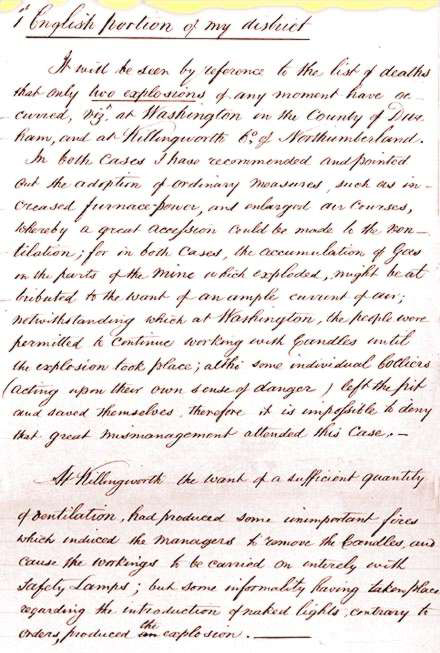 1st English portion of my district
It will be seen by reference to the list of deaths
that only two explosions of any moment have oc-
curred, vizt. at Washington in the County of Dur-
ham, and at Killingworth Co. of Northumberland.
In both Cases I have recommended and pointed
out the adoption of ordinary measures, such as in-
creased furnace power, and enlarged air courses,
whereby a great accession could be made to the ven-
tilation; for in both Cases, the accumulation of Gas
in the parts of the mine which exploded, might be at
tributed to the want of an ample current of air;
notwithstanding which at Washington, the people were
permitted to continue working with Candles until
the explosion took place; altho' some individual Colliers
(acting upon their own sense of danger) left the pit
and saved themselves, therefore it is impossible to deny
that great mismanagement attended this Case.—
At Killingworth the want of a sufficient quantity
of ventilation, had produced some unimportant fires
which induced the Managers to remove the Candles, and
cause the workings to be carried on entirely with
Safety Lamps; but some informality having taken place
regarding the introduction of naked lights, contrary to
orders, produced the explosion. ——